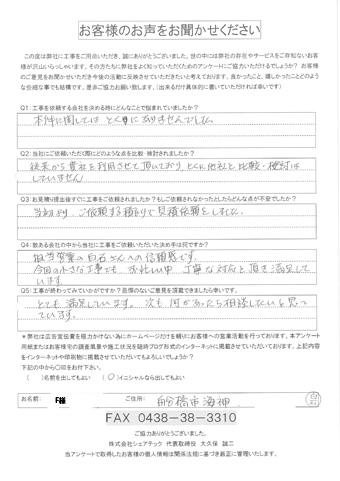 お客様のお声をお聞かせください
この度は弊社に工事をご用命いただき、誠にありがとうございました。世の中には弊社の存在やサービスをご存知ないお客
様が沢山いらっしゃいます。その方たちに弊社をよく知っていただくためのアンケートにご協力いただけるでしょうか？ お客様
のご意見をお聞かせいただき今後の活動に反映させていただきたいと考えております。良かったこと、嬉しかったことどのよう
な些細な事でも結構です。是非ご協力お願い致します。（出来るだけ具体的に書いていただければ幸いです）
Q1：工事を依頼する会社を決める時にどんなことで悩まれていましたか？
本件に関しては とくにありませんでした。
Q2：当社にご依頼いただく際にどのような点を比較・検討されましたか？
従来から貴社を利用させて頂いており とくに他社と比較・検討は
していません
Q3：お見積り提出後すぐに工事をご依頼されましたか？もしご依頼されなかったとしたらどんな点が不安でしたか？
当初より ご依頼する積もりで見積依頼をしました。
Q4：数ある会社の中から当社に工事をご依頼いただいた決め手は何ですか？
担当営業の白石さんへの信頼感です。
今回の小さな工事でも お忙しい中 丁寧な対応を頂き満足して
います。
Q5：工事が終わってみていかがですか？忌憚のないご意見を頂戴できましたら幸いです。
とても満足しています。次も何かあったら相談したいと思っ
ています。
＊弊社は広告宣伝費を極力かけない為にホームページだけを頼りにお客様への営業活動を行っております。本アンケート
用紙またはお客様宅の調査風景や施工状況を随時ブログ形式でインターネットに掲載させていただいております。上記内容
をインターネットや印刷物に掲載させていただいてもよろしいでしょうか？
下記の中から〇印をお付下さい。
（　）名前を出してもよい （〇）イニシャルなら出してもよい
お名前： F様 ご住所： 船橋市海神
FAX 0438-38-3310
ご協力ありがとうございました。
株式会社シェアテック 代表取締役 大久保 誠二
当アンケートで取得したお客様の個人情報は関係法規に基づき厳正に管理いたします。